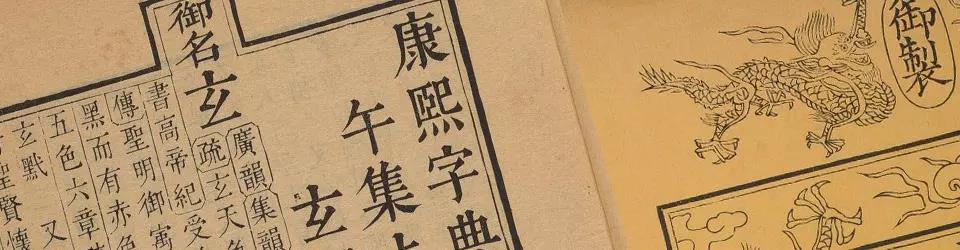 御製
康熙字典
午集上
玄
御名玄
廣韻集韻
疏玄天色
書高帝紀受
傳聖明御寓
黑而有赤色
五色六章
玄黙 又
聖賢懷